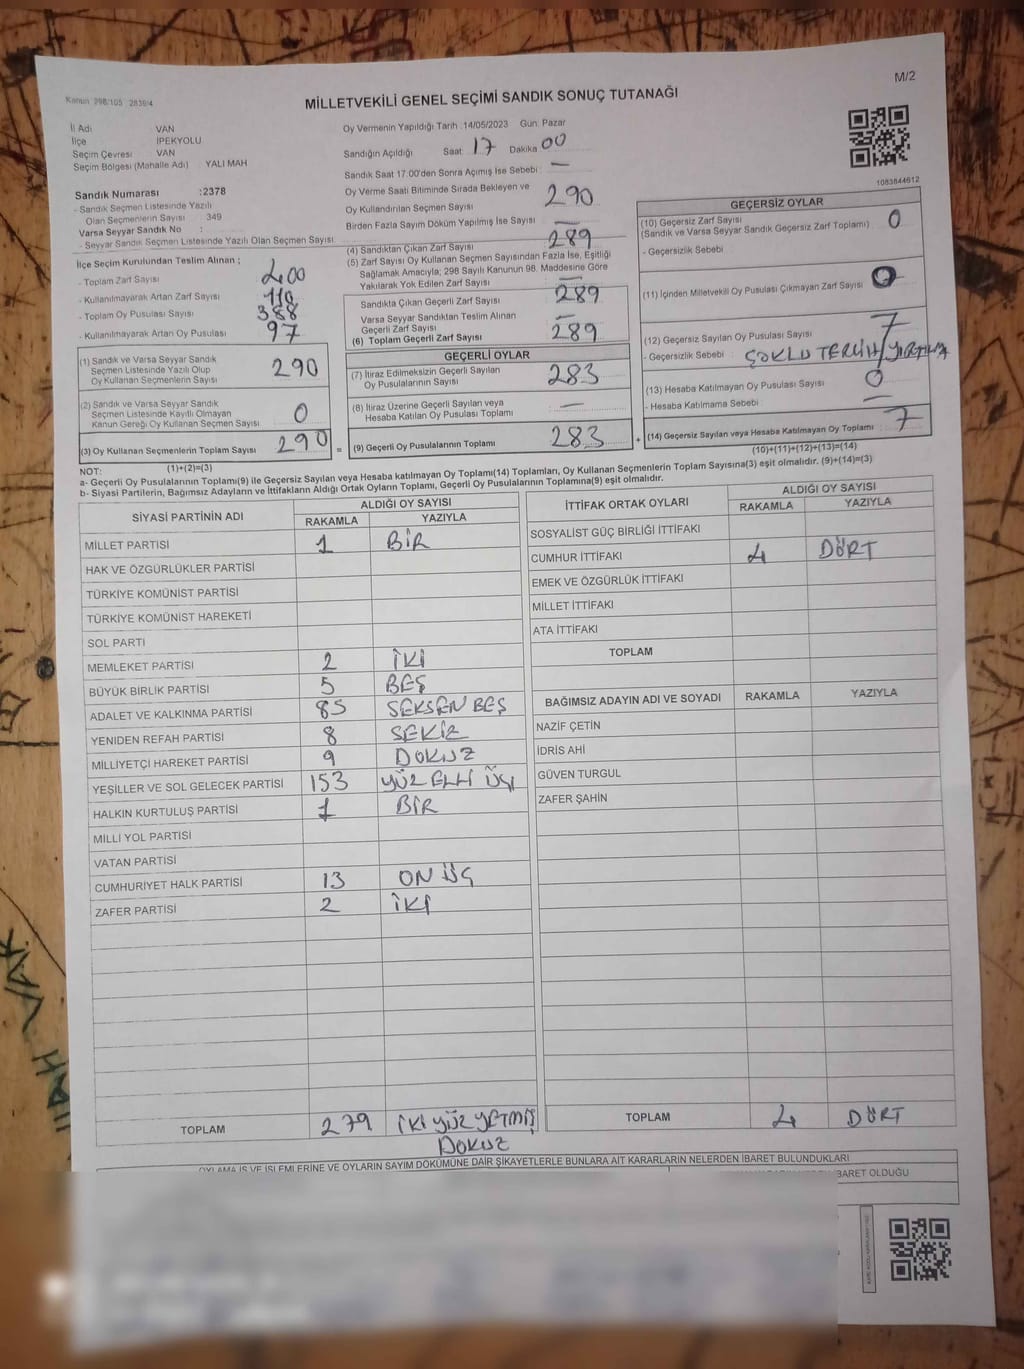 M/2
Kanun 298/105 2839/4
MİLLETVEKİLİ GENEL SEÇİMİ SANDIK SONUÇ TUTANAĞI
İl Adı VAN
İlçe İPEKYOLU
Seçim Çevresi VAN
Seçim Bölgesi (Mahalle Adı) : YALI MAH
Sandık Numarası :2378
- Sandık Seçmen Listesinde Yazılı
Olan Seçmenlerin Sayısı : 349
Varsa Seyyar Sandık No :
- Seyyar Sandık Seçmen Listesinde Yazılı Olan Seçmen Sayısı:
İlçe Seçim Kurulundan Teslim Alınan ;
- Toplam Zarf Sayısı 400
- Kullanılmayarak Artan Zarf Sayısı 110
- Toplam Oy Pusulası Sayısı 388
- Kullanılmayarak Artan Oy Pusulası 97
(1) Sandık ve Varsa Seyyar Sandık
Seçmen Listesinde Yazılı Olup
Oy Kullanan Seçmenlerin Sayısı 290
(2) Sandık ve Varsa Seyyar Sandık
Seçmen Listesinde Kayıtlı Olmayan
Kanun Gereği Oy Kullanan Seçmen Sayısı 0
(3) Oy Kullanan Seçmenlerin Toplam Sayısı 290 =
(1)+(2)=(3)
Oy Vermenin Yapıldığı Tarih :14/05/2023 Gün: Pazar
Sandığın Açıldığı Saat: 17 Dakika 00
Sandık Saat 17.00'den Sonra Açımış İse Sebebi : —
Oy Verme Saati Bitiminde Sırada Bekleyen ve
Oy Kullandırılan Seçmen Sayısı 290
Birden Fazla Sayım Döküm Yapılmış İse Sayısı —
(4) Sandıktan Çıkan Zarf Sayısı 289
(5) Zarf Sayısı Oy Kullanan Seçmen Sayısından Fazla İse, Eşitliği
Sağlamak Amacıyla; 298 Sayılı Kanunun 98. Maddesine Göre
Yakılarak Yok Edilen Zarf Sayısı —
Sandıkta Çıkan Geçerli Zarf Sayısı 289
Varsa Seyyar Sandıktan Teslim Alınan
Geçerli Zarf Sayısı —
(6) Toplam Geçerli Zarf Sayısı 289
GEÇERLİ OYLAR
(7) İtiraz Edilmeksizin Geçerli Sayılan
Oy Pusulalarının Sayısı 283
(8) İtiraz Üzerine Geçerli Sayılan veya
Hesaba Katılan Oy Pusulası Toplamı —
(9) Geçerli Oy Pusulalarının Toplamı 283 +
1083844612
GEÇERSİZ OYLAR
(10) Geçersiz Zarf Sayısı 0
(Sandık ve Varsa Seyyar Sandık Geçersiz Zarf Toplamı)
- Geçersizlik Sebebi
(11) İçinden Milletvekili Oy Pusulası Çıkmayan Zarf Sayısı 0
(12) Geçersiz Sayılan Oy Pusulası Sayısı 7
- Geçersizlik Sebebi : ÇOKLU TERCİH/YIRTILMA
(13) Hesaba Katılmayan Oy Pusulası Sayısı 0
- Hesaba Katılmama Sebebi : —
(14) Geçersiz Sayılan veya Hesaba Katılmayan Oy Toplamı : 7
(10)+(11)+(12)+(13)=(14)
NOT:
a- Geçerli Oy Pusulalarının Toplamı(9) ile Geçersiz Sayılan veya Hesaba katılmayan Oy Toplamı(14) Toplamları, Oy Kullanan Seçmenlerin Toplam Sayısına(3) eşit olmalıdır. (9)+(14)=(3)
b- Siyasi Partilerin, Bağımsız Adayların ve İttifakların Aldığı Ortak Oyların Toplamı, Geçerli Oy Pusulalarının Toplamına(9) eşit olmalıdır.
SİYASİ PARTİNİN ADI ALDIĞI OY SAYISI
RAKAMLA YAZIYLA
MİLLET PARTİSİ 1 BİR
HAK VE ÖZGÜRLÜKLER PARTİSİ
TÜRKİYE KOMÜNİST PARTİSİ
TÜRKİYE KOMÜNİST HAREKETİ
SOL PARTİ
MEMLEKET PARTİSİ 2 İKİ
BÜYÜK BİRLİK PARTİSİ 5 BEŞ
ADALET VE KALKINMA PARTİSİ 85 SEKSEN BEŞ
YENİDEN REFAH PARTİSİ 8 SEKİZ
MİLLİYETÇİ HAREKET PARTİSİ 9 DOKUZ
YEŞİLLER VE SOL GELECEK PARTİSİ 153 YÜZ ELLİ ÜÇ
HALKIN KURTULUŞ PARTİSİ 1 BİR
MİLLİ YOL PARTİSİ
VATAN PARTİSİ
CUMHURİYET HALK PARTİSİ 13 ON ÜÇ
ZAFER PARTİSİ 2 İKİ
TOPLAM 279 İKİ YÜZ YETMİŞ
DOKUZ
İTTİFAK ORTAK OYLARI ALDIĞI OY SAYISI
RAKAMLA YAZIYLA
SOSYALİST GÜÇ BİRLİĞİ İTTİFAKI
CUMHUR İTTİFAKI 4 DÖRT
EMEK VE ÖZGÜRLÜK İTTİFAKI
MİLLET İTTİFAKI
ATA İTTİFAKI
TOPLAM
BAĞIMSIZ ADAYIN ADI VE SOYADI RAKAMLA YAZIYLA
NAZİF ÇETİN
İDRİS AHİ
GÜVEN TURGUL
ZAFER ŞAHİN
TOPLAM 4 DÖRT
OYLAMA İŞ VE İŞLEMLERİNE VE OYLARIN SAYIM DÖKÜMÜNE DAİR ŞİKAYETLERLE BUNLARA AİT KARARLARIN NELERDEN İBARET BULUNDUKLARI
İBARET OLDUĞU